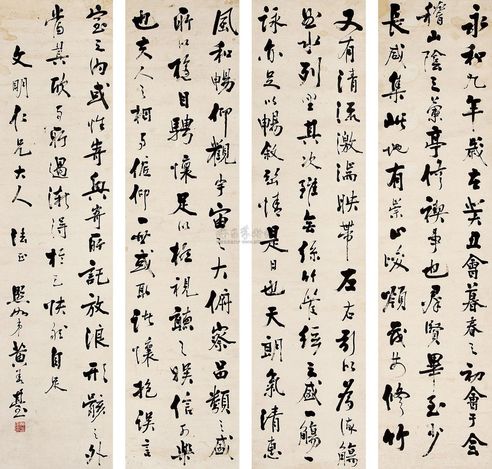 永和九年歲在癸丑會暮春之初會于會
稽山陰之蘭亭修禊事也群賢畢至少
長咸集此地有崇山峻嶺茂林修竹
又有清流激湍映帶左右引以為流觴
曲水列坐其次雖無絲竹管絃之盛一觴一
詠亦足以暢敘幽情是日也天朗氣清惠
風和暢仰觀宇宙之大俯察品類之盛
所以遊目騁懷足以極視聽之娛信可樂
也夫人之相與俯仰一世或取諸懷抱悟言
室之內或性寄與寄所託放浪形骸之外
當其欣於所遇漸得於己快然自足
文明仁兄大人 法正 弟黃